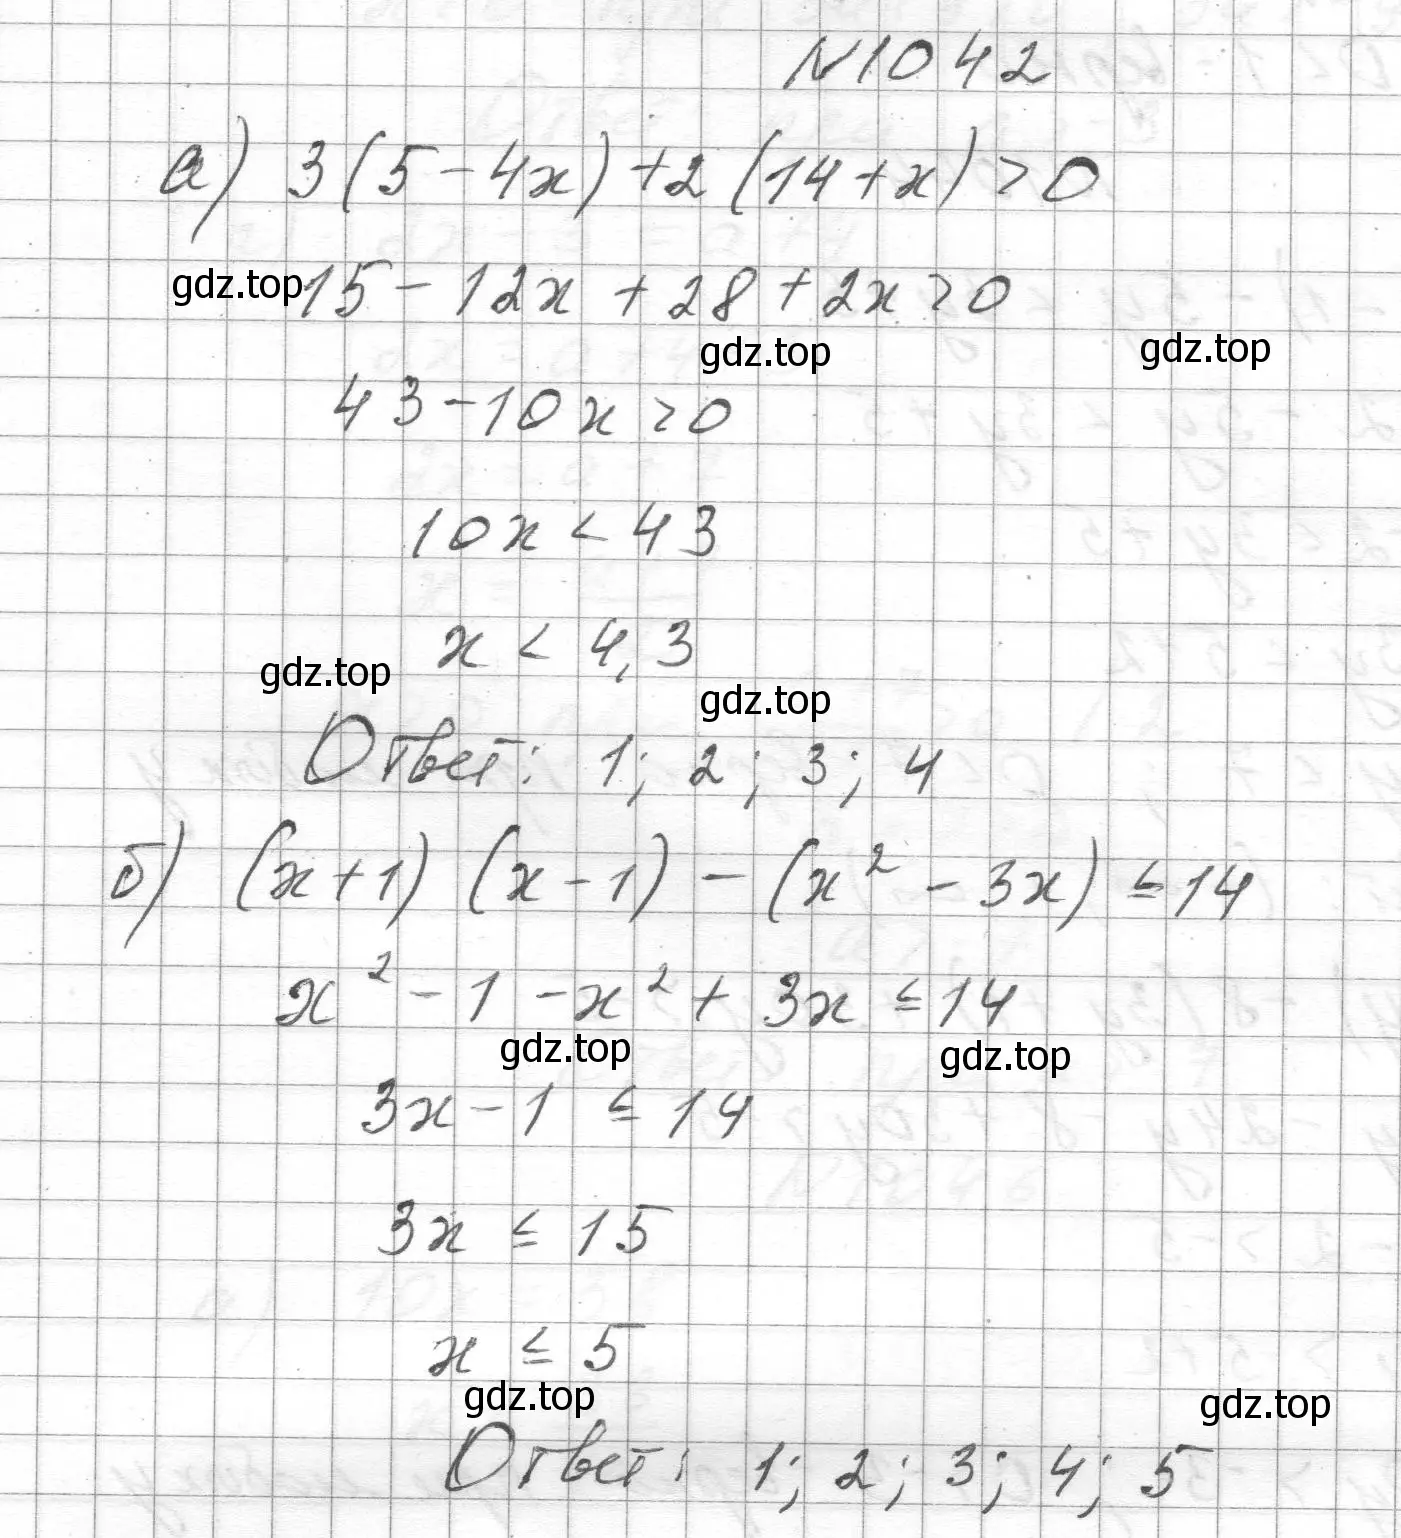 N1042
а) 3(5-4x)+2(14+x)>0
gdz.top 15-12x+28+2x>0
gdz.top gdz.top
43-10x>0
10x<43
x<4,3
gdz.top gdz.top
Ответ: 1; 2; 3; 4
б) (x+1)(x-1)-(x²-3x)≤14
x²-1-x²+3x≤14
gdz.top gdz.top
3x-1≤14
3x≤15
x≤5
gdz.top gdz.top
Ответ: 1; 2; 3; 4; 5